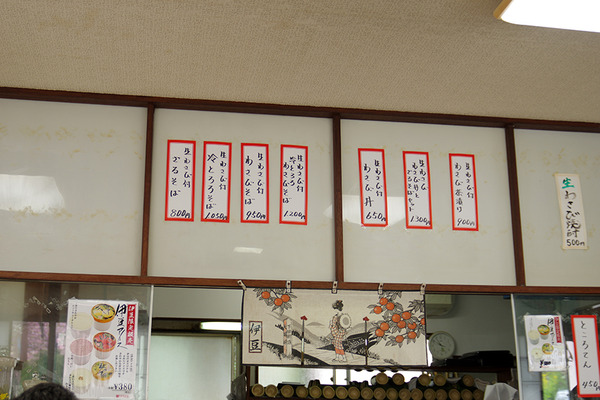 生わさび付
ざるそば
800円
生わさび付
冷とろろそば
1050円
生わさび付
わさびそば
950円
生わさび付
冷とろろ
わさびそば
1200円
生わさび付
わさび丼
650円
生わさび付
わさび丼と
ざるそばセット
1300円
生わさび付
900円
生わさび焼酎
500円
伊豆
¥380
ところてん
450円